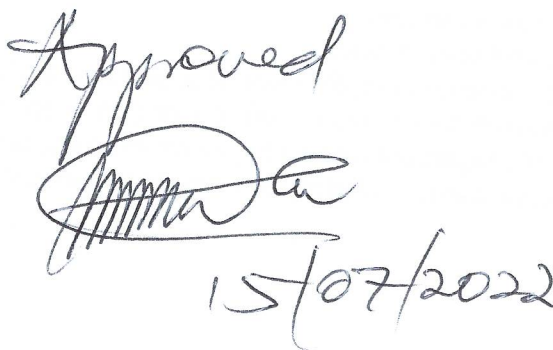 Approved
15/07/2022